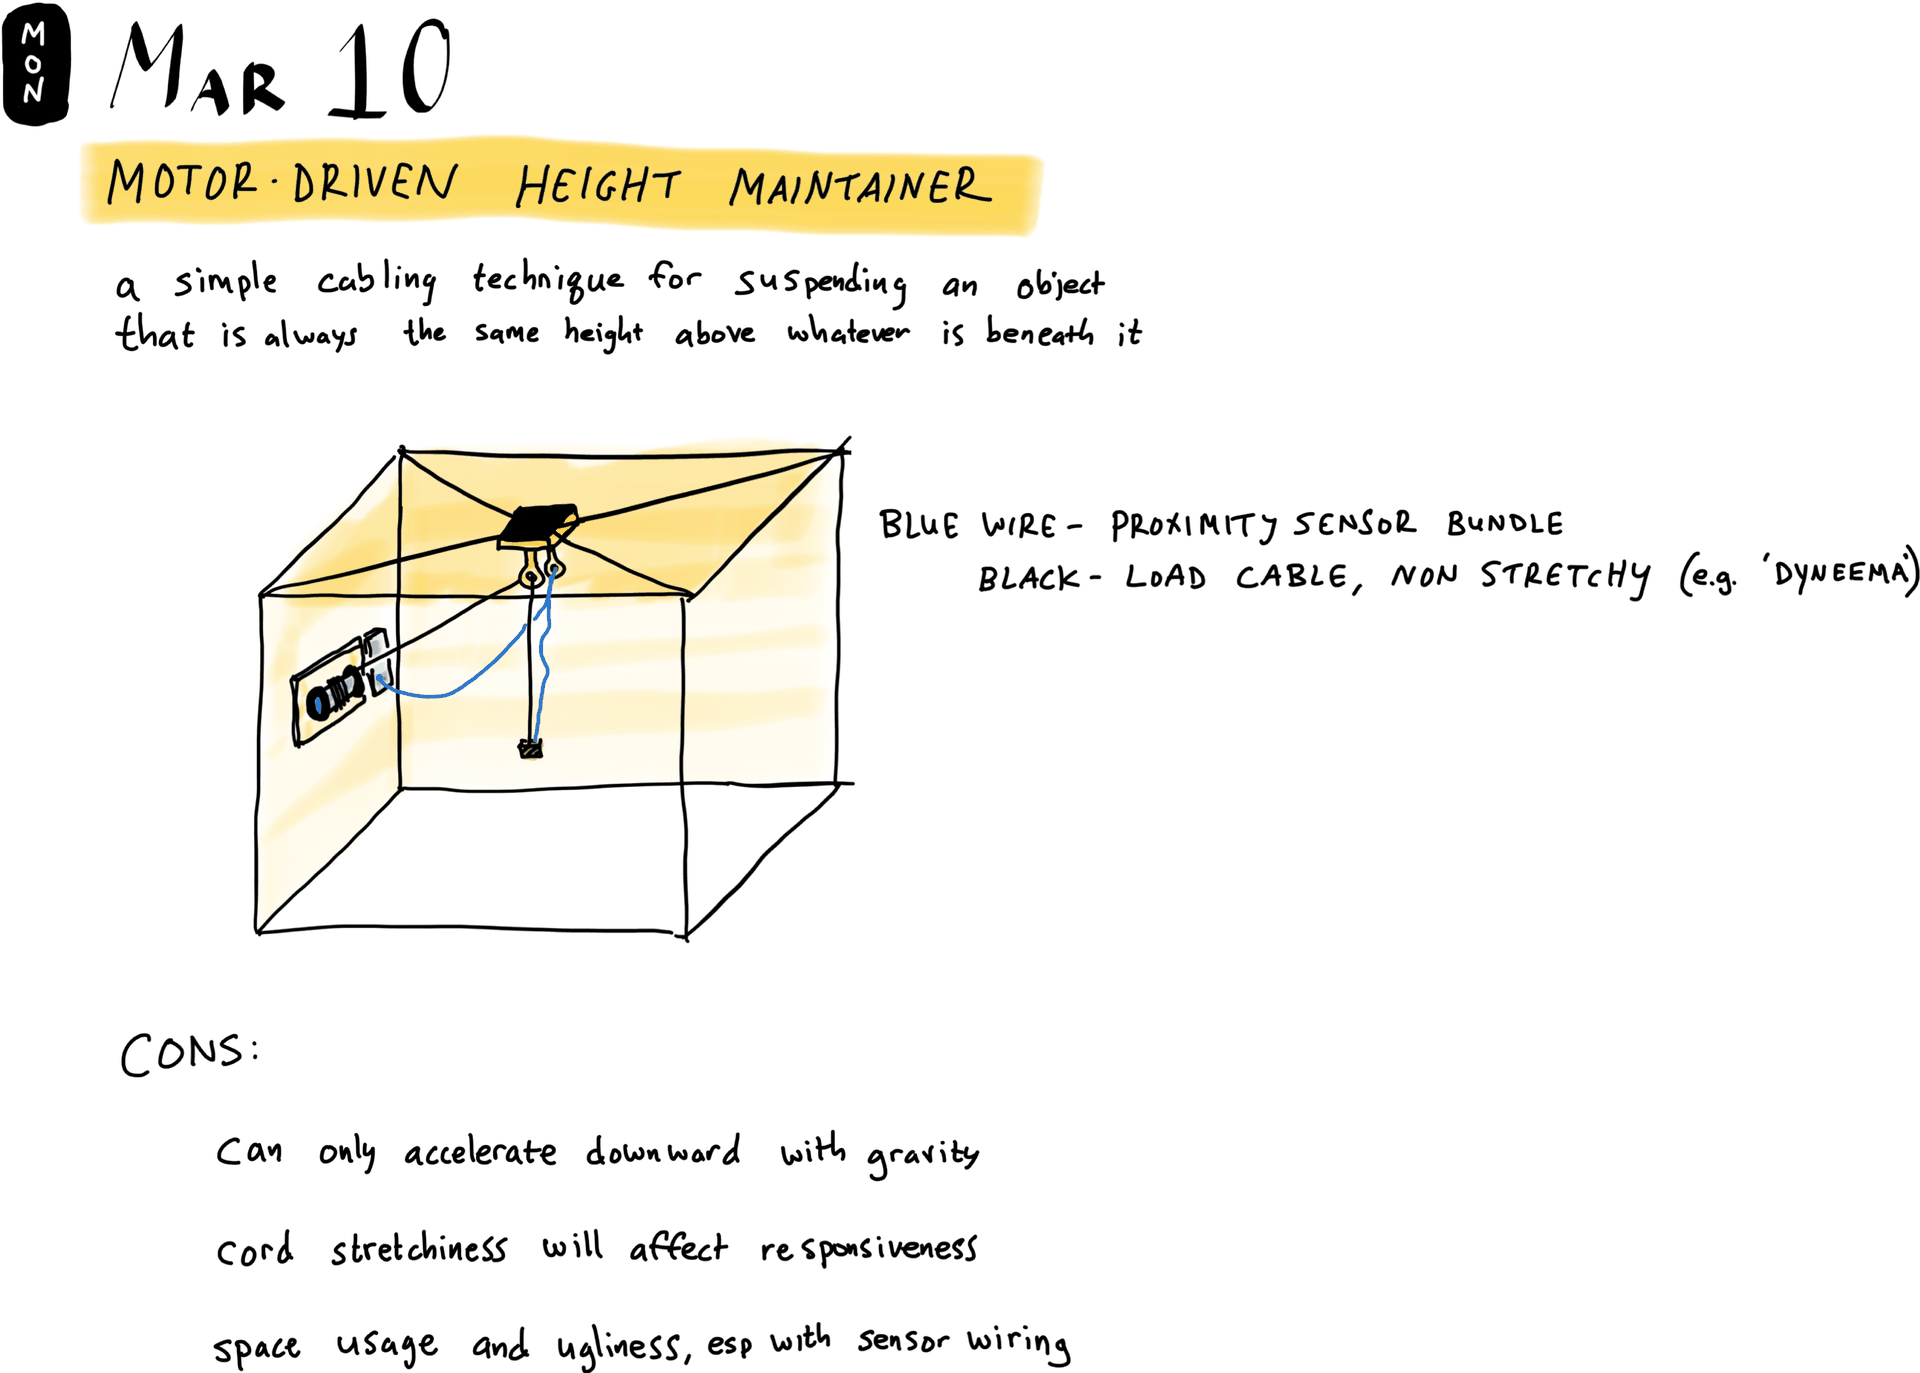 MON
MAR 10
MOTOR·DRIVEN HEIGHT MAINTAINER
a simple cabling technique for suspending an object
that is always the same height above whatever is beneath it
BLUE WIRE - PROXIMITY SENSOR BUNDLE
BLACK - LOAD CABLE, NON STRETCHY (e.g. 'DYNEEMA')
CONS:
Can only accelerate downward with gravity
cord stretchiness will affect responsiveness
space usage and ugliness, esp with sensor wiring